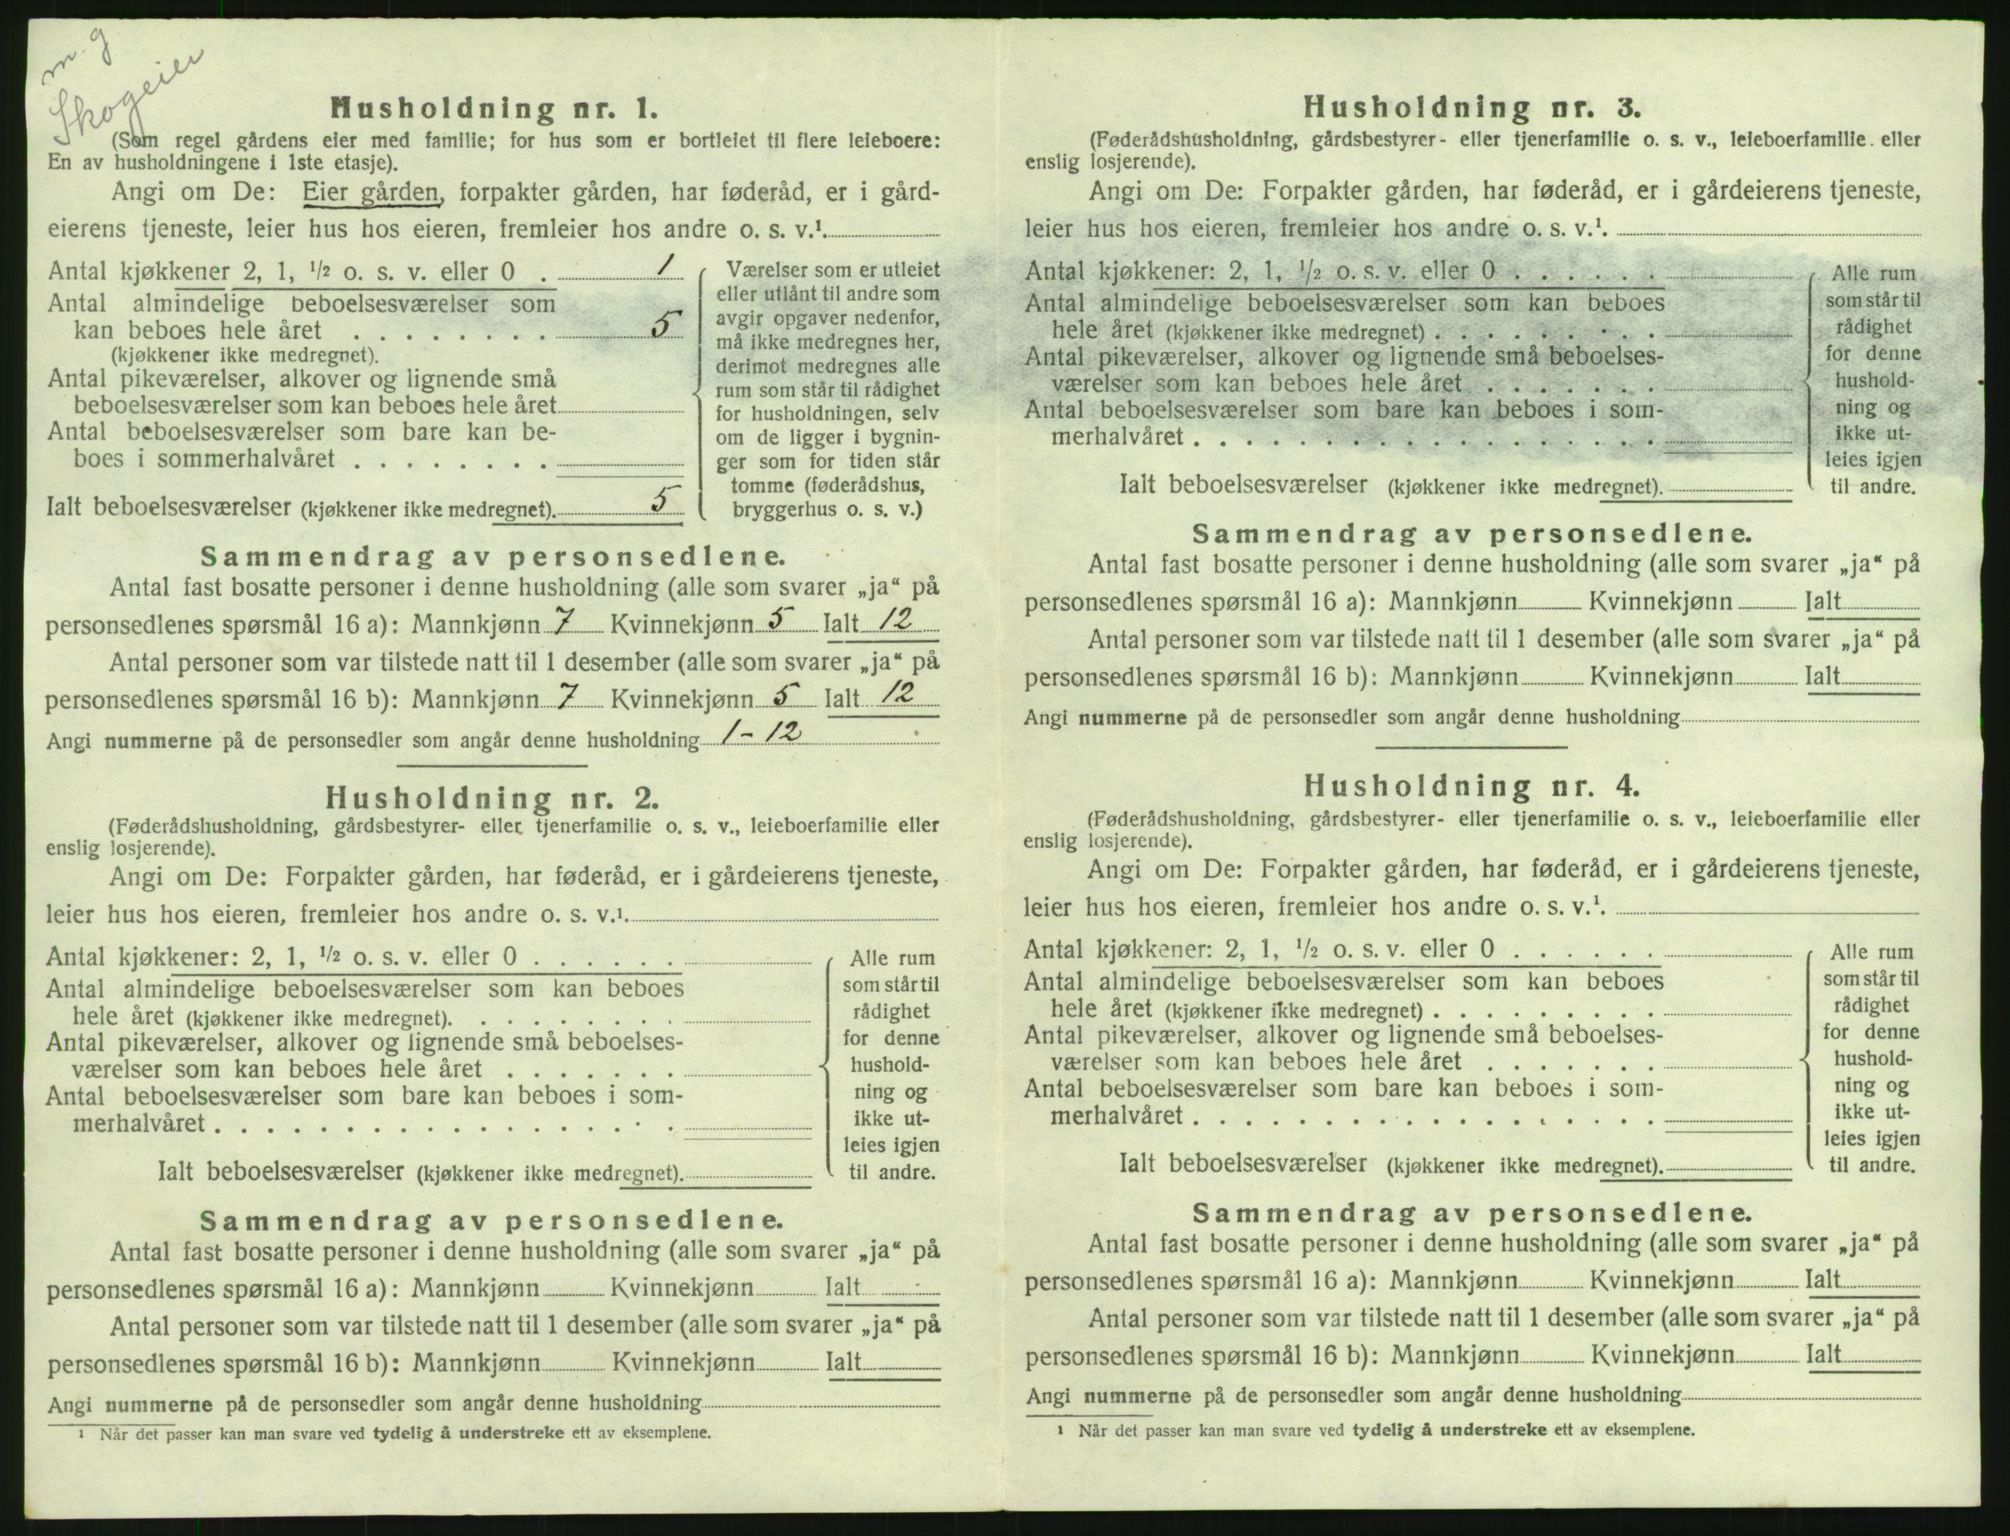 m. g
Skogeier
Husholdning nr. 1.
(Som regel gårdens eier med familie; for hus som er bortleiet til flere leieboere:
En av husholdningene i 1ste etasje).
Angi om De: Eier gården, forpakter gården, har føderåd, er i gård-
eierens tjeneste, leier hus hos eieren, fremleier hos andre o. s. v.¹.
Antal kjøkkener 2, 1, ½ o. s. v. eller 0 . 1
Antal almindelige beboelsesværelser som
kan beboes hele året . . . . . . . . 5
(kjøkkener ikke medregnet).
Antal pikeværelser, alkover og lignende små
beboelsesværelser som kan beboes hele året
Antal beboelsesværelser som bare kan be-
boes i sommerhalvåret . . . . . . . .
Ialt beboelsesværelser (kjøkkener ikke medregnet). 5
Værelser som er utleiet
eller utlånt til andre som
avgir opgaver nedenfor,
må ikke medregnes her,
derimot medregnes alle
rum som står til rådighet
for husholdningen, selv
om de ligger i bygnin-
ger som for tiden står
tomme (føderådshus,
bryggerhus o. s. v.)
Sammendrag av personsedlene.
Antal fast bosatte personer i denne husholdning (alle som svarer „ja“ på
personsedlenes spørsmål 16 a): Mannkjønn 7 Kvinnekjønn 5 Ialt 12
Antal personer som var tilstede natt til 1 desember (alle som svarer „ja“ på
personsedlenes spørsmål 16 b): Mannkjønn 7 Kvinnekjønn 5 Ialt 12
Angi nummerne på de personsedler som angår denne husholdning 1-12
Husholdning nr. 2.
(Føderådshusholdning, gårdsbestyrer- eller tjenerfamilie o. s. v., leieboerfamilie eller
enslig losjerende).
Angi om De: Forpakter gården, har føderåd, er i gårdeierens tjeneste,
leier hus hos eieren, fremleier hos andre o. s. v.¹.
Antal kjøkkener: 2, 1, ½ o. s. v. eller 0 . . . . . .
Antal almindelige beboelsesværelser som kan beboes
hele året (kjøkkener ikke medregnet). . . . . . . . .
Antal pikeværelser, alkover og lignende små beboelses-
værelser som kan beboes hele året . . . . . . .
Antal beboelsesværelser som bare kan beboes i som-
merhalvåret . . . . . . . . . . . . . . . . . .
Ialt beboelsesværelser (kjøkkener ikke medregnet).
Alle rum
som står til
rådighet
for denne
hushold-
ning og
ikke ut-
leies igjen
til andre.
Sammendrag av personsedlene.
Antal fast bosatte personer i denne husholdning (alle som svarer „ja“ på
personsedlenes spørsmål 16 a): Mannkjønn Kvinnekjønn Ialt
Antal personer som var tilstede natt til 1 desember (alle som svarer „ja“ på
personsedlenes spørsmål 16 b): Mannkjønn Kvinnekjønn Ialt
Angi nummerne på de personsedler som angår denne husholdning
¹ Når det passer kan man svare ved tydelig å understreke ett av eksemplene.
Husholdning nr. 3.
(Føderådshusholdning, gårdsbestyrer- eller tjenerfamilie o. s. v., leieboerfamilie eller
enslig losjerende).
Angi om De: Forpakter gården, har føderåd, er i gårdeierens tjeneste,
leier hus hos eieren, fremleier hos andre o. s. v.¹.
Antal kjøkkener: 2, 1, ½ o. s. v. eller 0 . . . . . .
Antal almindelige beboelsesværelser som kan beboes
hele året (kjøkkener ikke medregnet) . . . . . . . . .
Antal pikeværelser, alkover og lignende små beboelses-
værelser som kan beboes hele året . . . . . . .
Antal beboelsesværelser som bare kan beboes i som-
merhalvåret . . . . . . . . . . . . . . . . . .
Ialt beboelsesværelser (kjøkkener ikke medregnet).
Alle rum
som står til
rådighet
for denne
hushold-
ning og
ikke ut-
leies igjen
til andre.
Sammendrag av personsedlene.
Antal fast bosatte personer i denne husholdning (alle som svarer „ja“ på
personsedlenes spørsmål 16 a): Mannkjønn Kvinnekjønn Ialt
Antal personer som var tilstede natt til 1 desember (alle som svarer „ja“ på
personsedlenes spørsmål 16 b): Mannkjønn Kvinnekjønn Ialt
Angi nummerne på de personsedler som angår denne husholdning
Husholdning nr. 4.
(Føderådshusholdning, gårdsbestyrer- eller tjenerfamilie o. s. v., leieboerfamilie eller
enslig losjerende).
Angi om De: Forpakter gården, har føderåd, er i gårdeierens tjeneste,
leier hus hos eieren, fremleier hos andre o. s. v.¹.
Antal kjøkkener: 2, 1, ½ o. s. v. eller 0 . . . . . .
Antal almindelige beboelsesværelser som kan beboes
hele året (kjøkkener ikke medregnet) . . . . . . . . .
Antal pikeværelser, alkover og lignende små beboelses-
værelser som kan beboes hele året . . . . . . .
Antal beboelsesværelser som bare kan beboes i som-
merhalvåret . . . . . . . . . . . . . . . . . .
Ialt beboelsesværelser (kjøkkener ikke medregnet).
Alle rum
som står til
rådighet
for denne
hushold-
ning og
ikke ut-
leies igjen
til andre.
Sammendrag av personsedlene.
Antal fast bosatte personer i denne husholdning (alle som svarer „ja“ på
personsedlenes spørsmål 16 a): Mannkjønn Kvinnekjønn Ialt
Antal personer som var tilstede natt til 1 desember (alle som svarer „ja“ på
personsedlenes spørsmål 16 b): Mannkjønn Kvinnekjønn Ialt
Angi nummerne på de personsedler som angår denne husholdning
¹ Når det passer kan man svare ved tydelig å understreke ett av eksemplene.